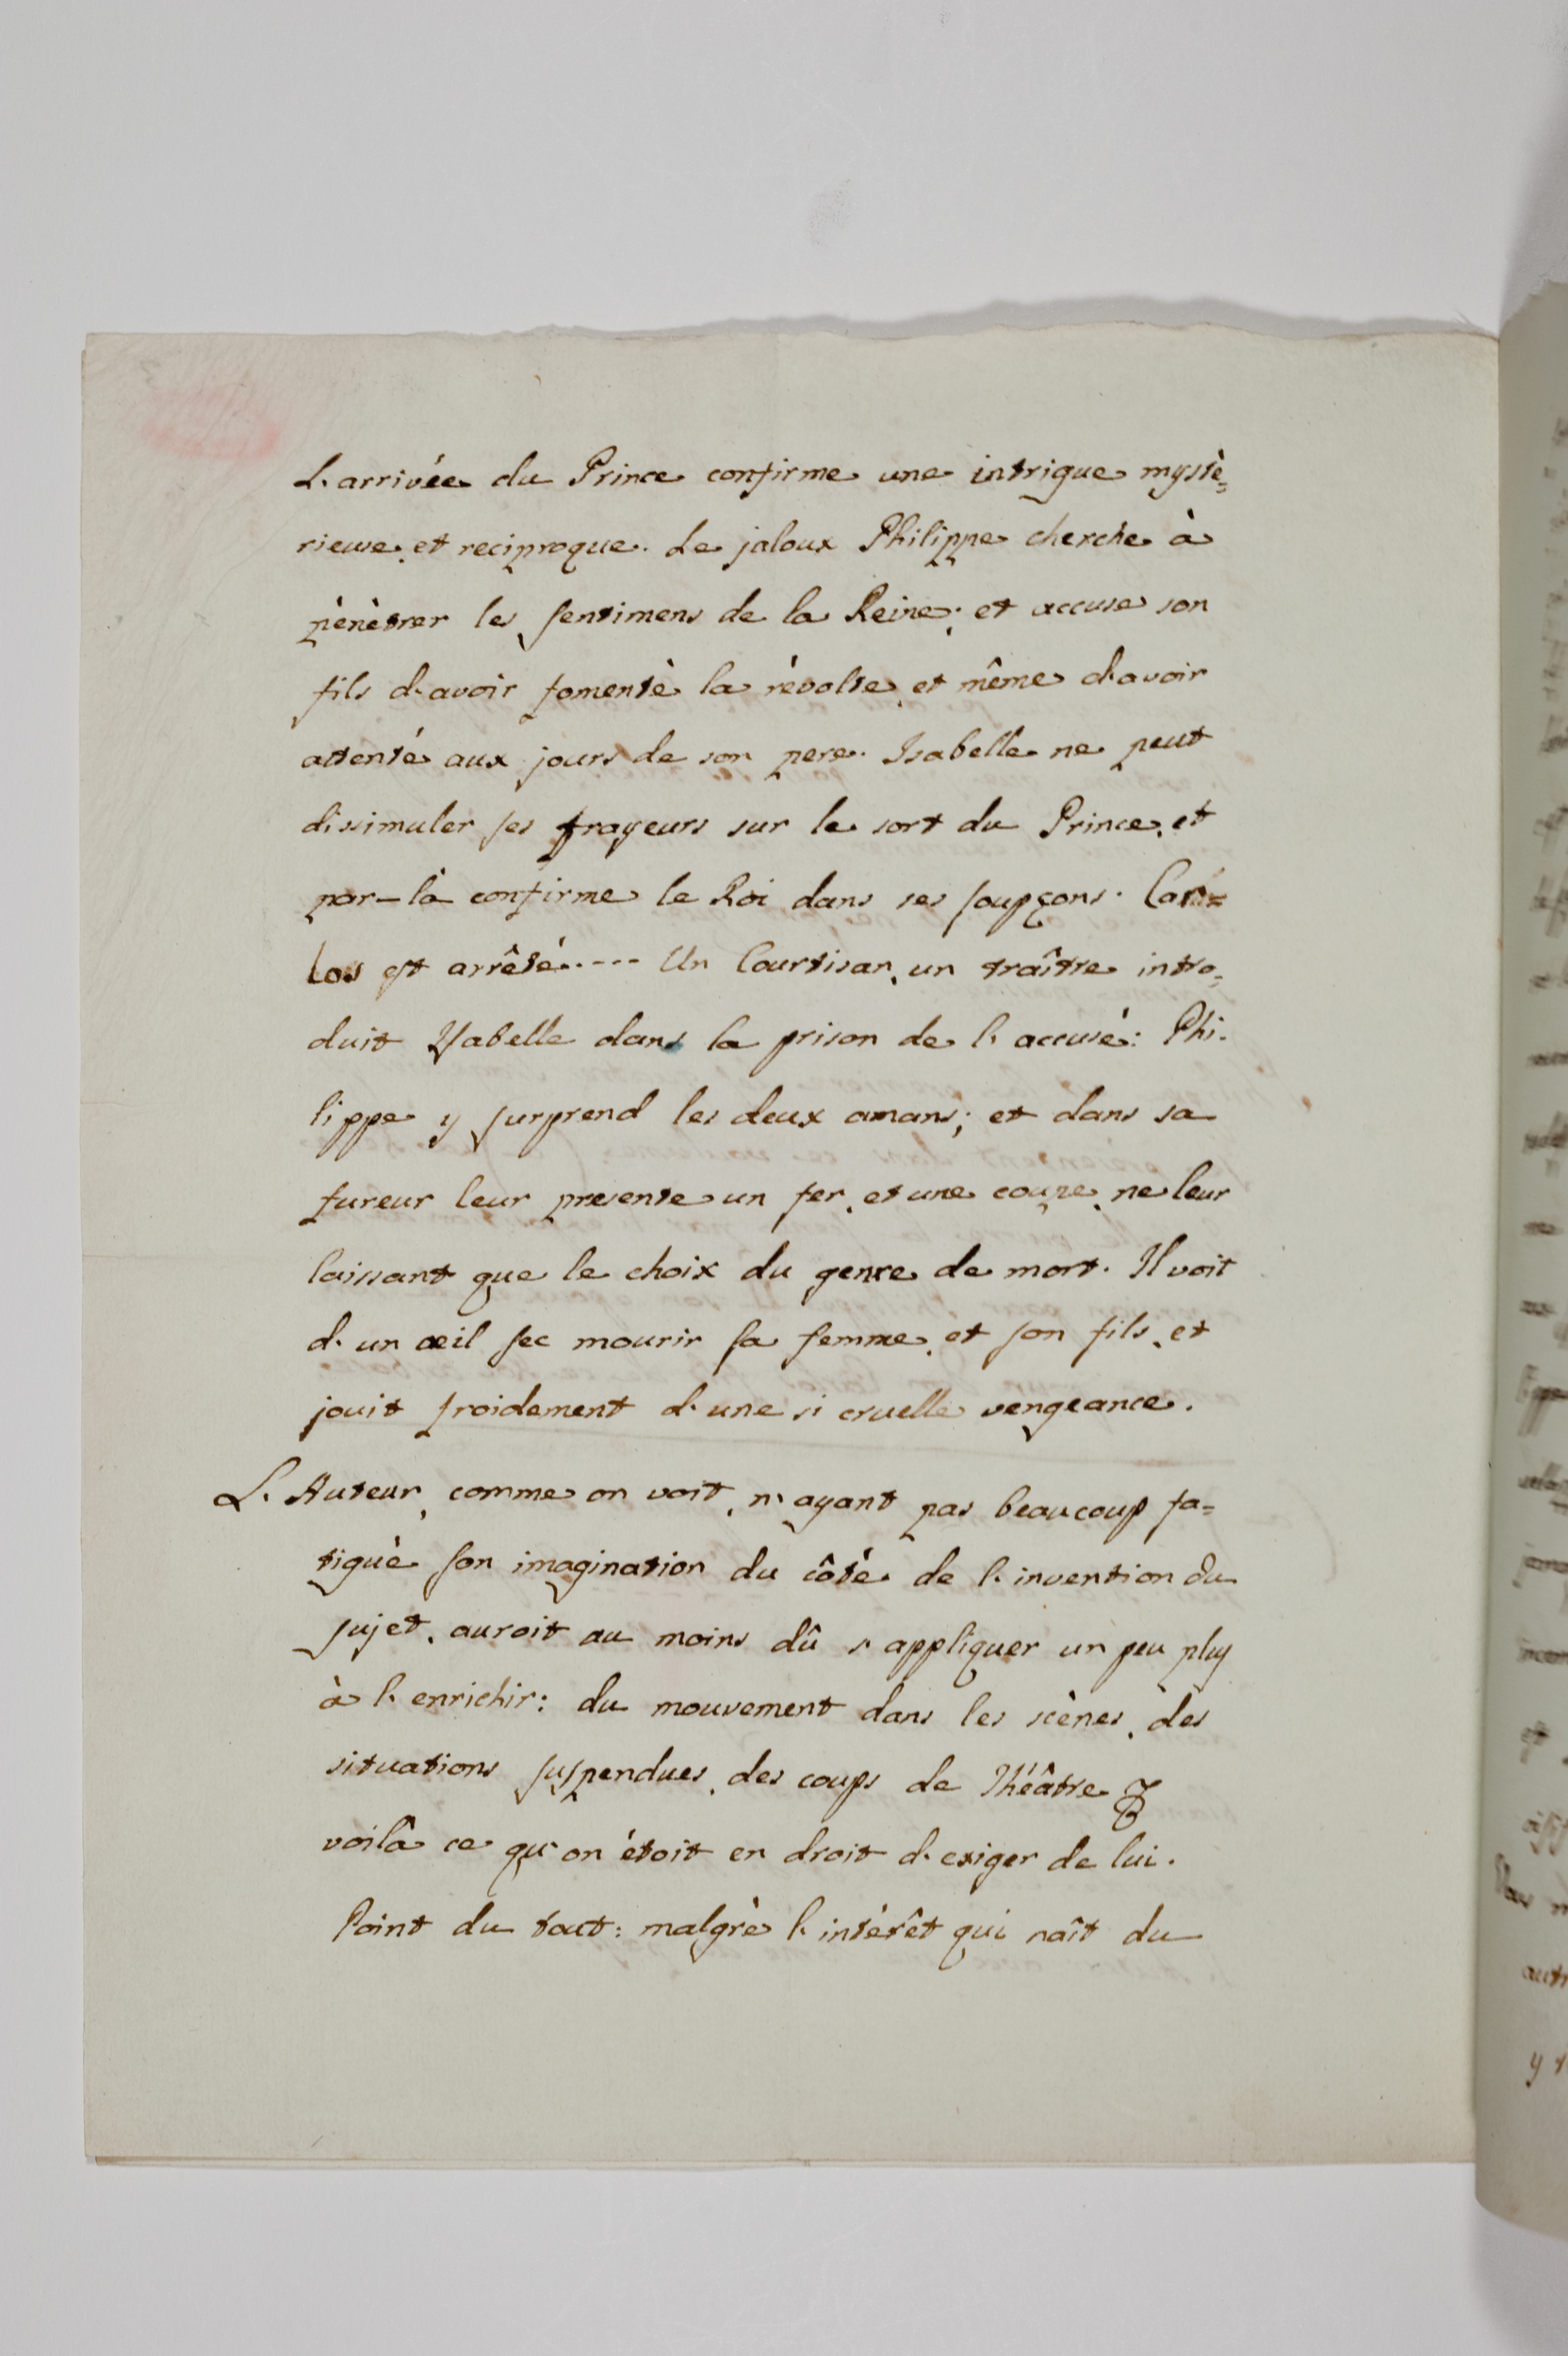 L'arrivée du Prince confirme une intrigue mystè=
rieuse, et reciproque. Le jaloux Philippe cherche à
pènètrer les sentimens de la Reine; et accuse son
fils d'avoir fomentè la révolte, et même d'avoir
attenté aux jours de son pere. Isabelle ne peut
dissimuler ses frayeurs sur le sort du Prince, et
par-là confirme le Roi dans ses soupçons. Car=
los est arrêté..... Un Courtisan, un traître intro=
duit Isabelle dans la prison de l'accusé: Phi-
lippe y surprend les deux amans; et dans sa
fureur leur presente un fer, et une coupe, ne leur
laissant que le choix du genre de mort. Il voit
d'un œil sec mourir sa femme, et son fils, et
jouit froidement d'une si cruelle vengeance.
L'Auteur, comme on voit, n'ayant pas beaucoup fa=
tiguè son imagination du côté de l'invention du
sujet, auroit au moins dû s'appliquer un peu plus
à l'enrichir: du mouvement dans les scènes, des
situations suspendues, des coups de Théâtre &
voilà ce qu'on étoit en droit d'exiger de lui.
Point du tout: malgrè l'intérêt qui naît du